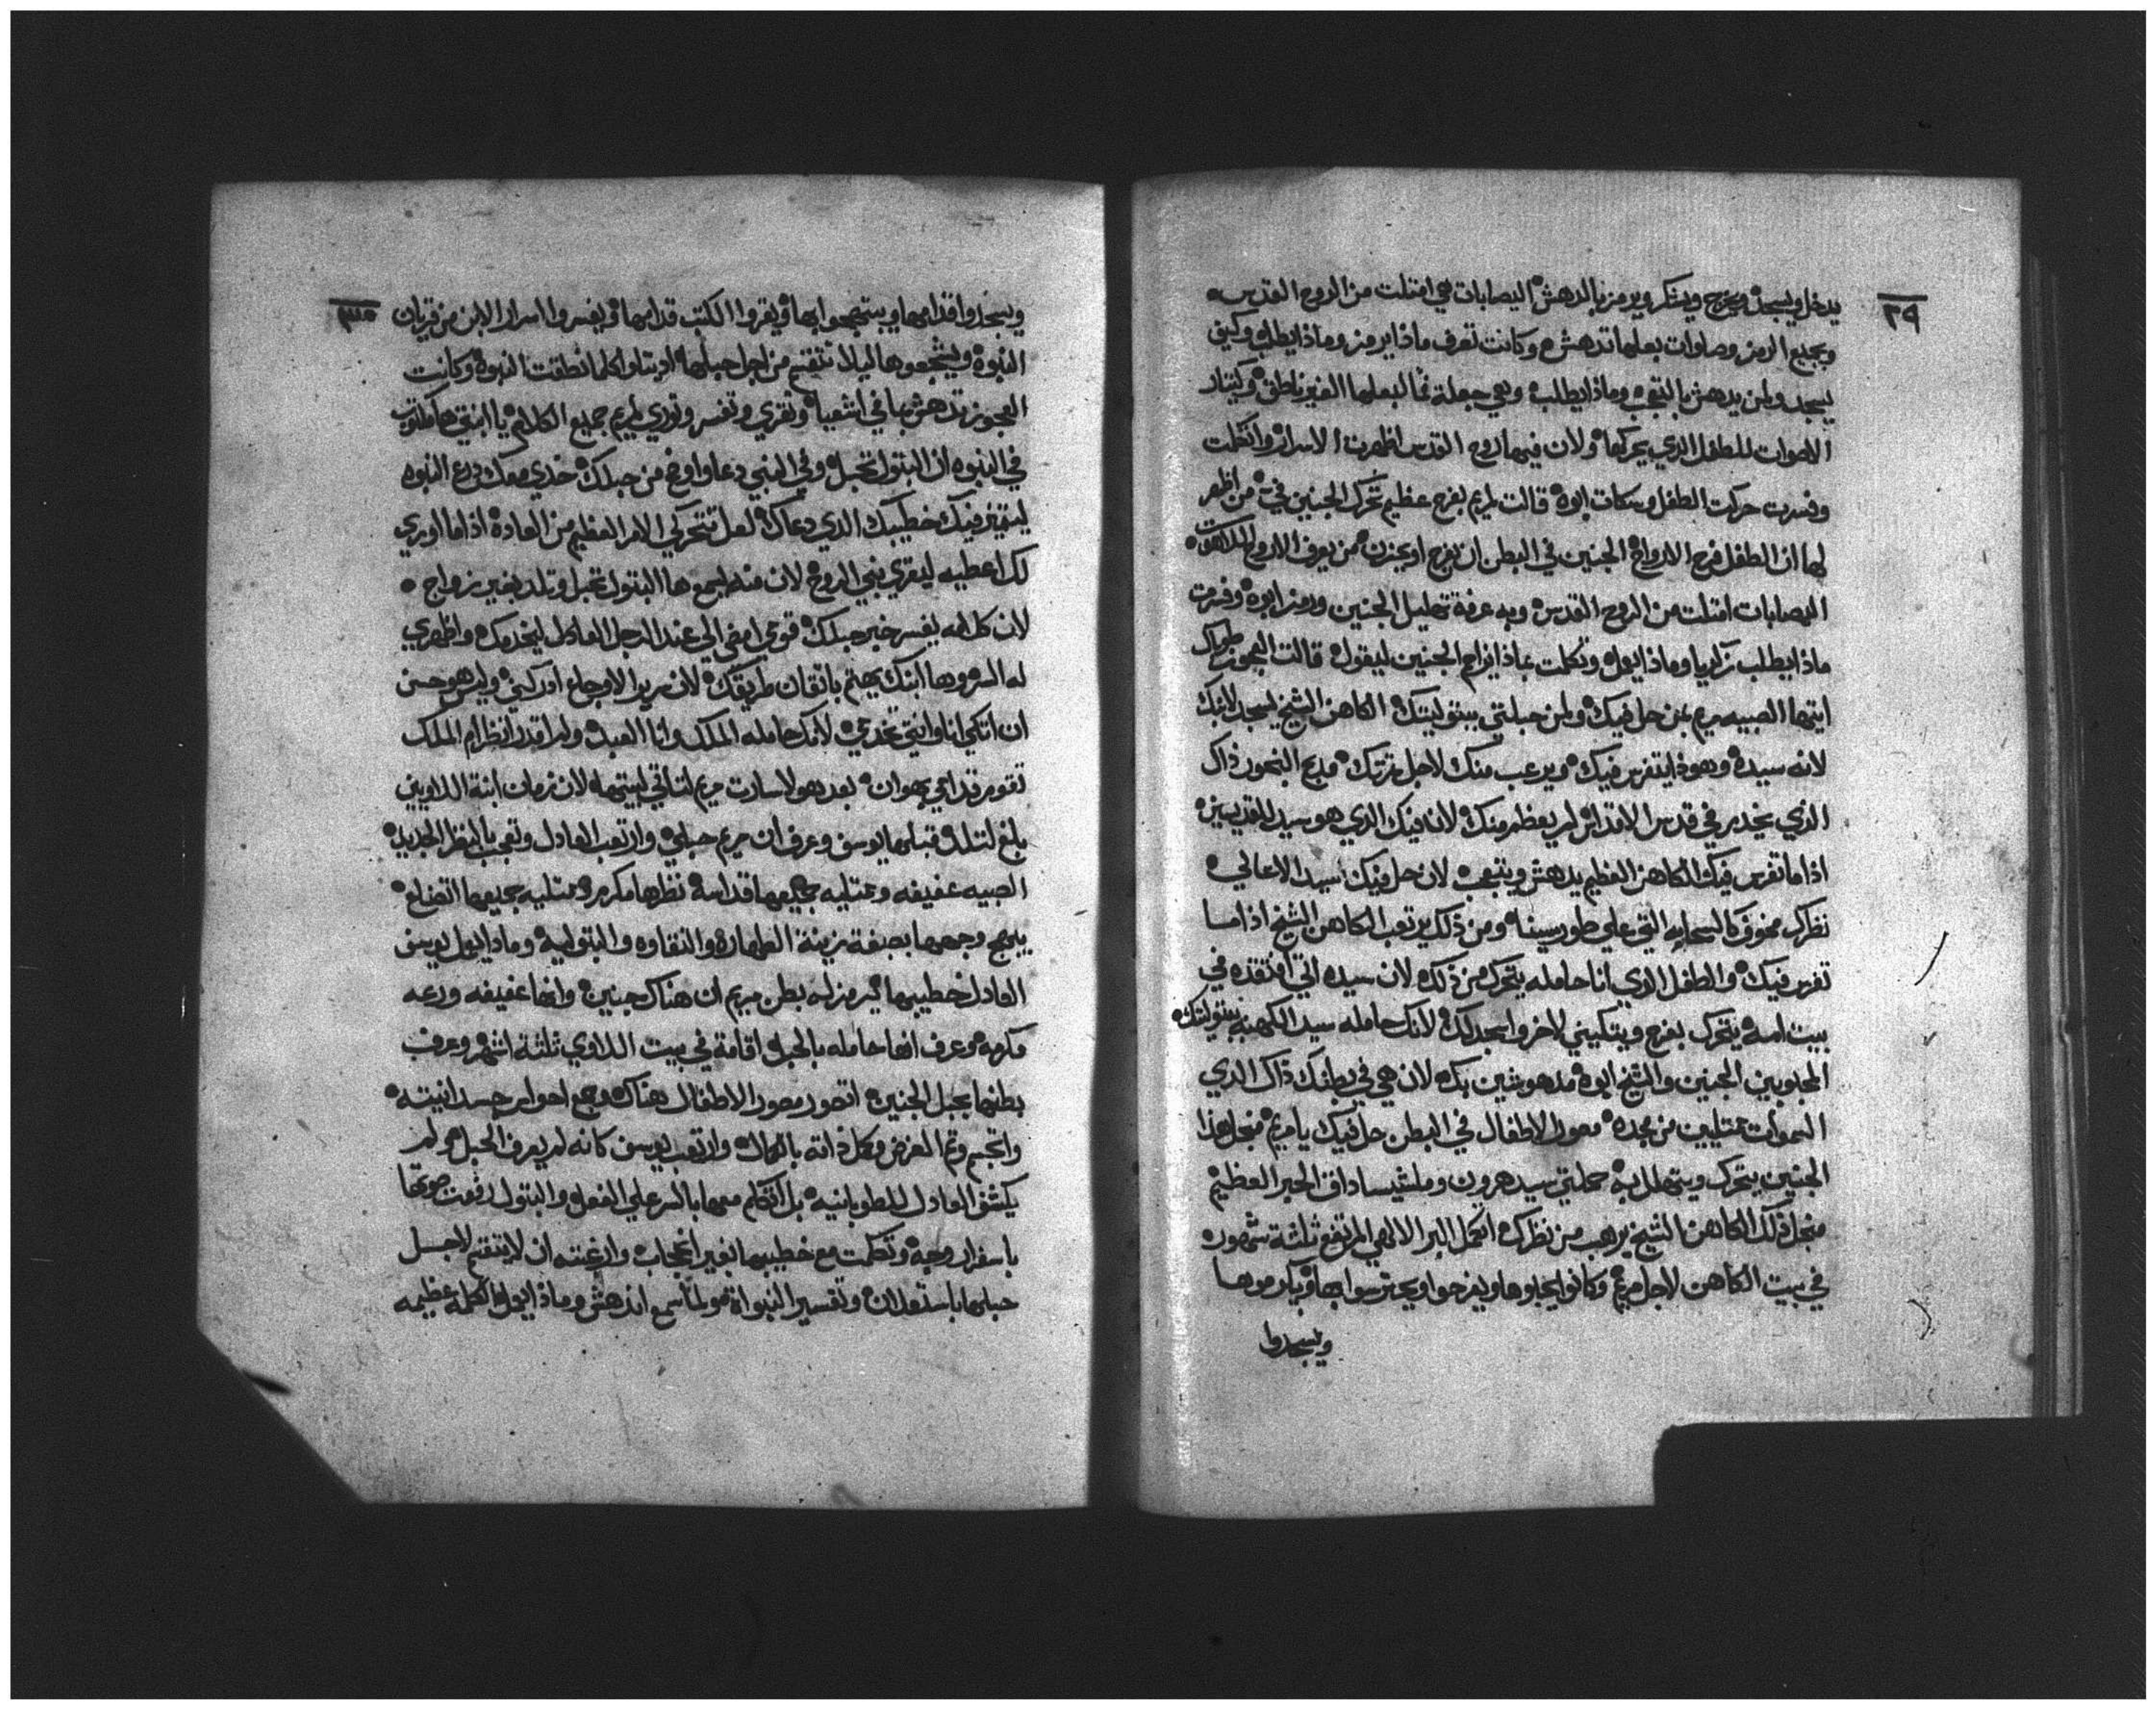 ٢٩
يدخل ويسجد ويخرج ويشكر ويرمز بالدهش اليصابات هي امتلت من الروح القدس
وبجميع الرمز وصلوات بعلها تدهش وكانت تعرف ماذا يرمز وماذا يطلب وكيف
يسجد ولمن يدهش بالتعجب وماذا يطلب وهي جعلة فما لبعلها الغير ناطق وكيتار
الاصوات للطفل الذي يحركها ولان فيها روح القدس اظهرت الاسرار واتكلمت
وفسرت حركت الطفل وسكات ابوه قالت لمريم بفرح عظيم تحرك الجنين في من اظهر
لها ان الطفل فرح الارواح الجنين في البطن ان يفرح او يحزن من يعرف الاروح
اليصابات امتلت من الروح القدس وبه عرفة تهليل الجنين ورمز ابوه وفسرت
ماذا يطلب زكريا وماذا يعمل وتكلمت عماذا الجنين ليقول قالت العجوز
ايتها الصبيه مريم من حل فيك ولمن حبلتي ببتوليتك الكاهن الشيخ يسجد لابنك
لانه سيده وهوذا يتفرس فيك ويرعب منك لاجل مزتك مديح البخور ذاك
الذي يخدم في قدس الاقداس لم يعظم منك لان فيك الذي هو سيد للقديسين
اذا ما تفرس فيك الكاهن العظيم يدهش ويتعجب لان حل فيك سيد الاعالي
نظرك مخوف كالسحابه التي علي طور سينا ومن ذلك يرتعب الكاهن الشيخ اذا ما
تفرس فيك والطفل الذي انا حامله يتحرك من ذلك لان سيده اتي افتقده في
بيت امه يتحرك بفرح ويتكيني لاخر واسجد لك لانك حامله سيد الكهنه ببتوليتك
المحبوبين الجنين والشيخ ابوه مدهوشين بك لان هي في بطنك ذاك الذي
السموات ممتليين من مجده مصور الاطفال في البطن حل فيك يا مريم فمن اجل هذا
الجنين يتحرك ويتهلل به حملتي سيد هرون وملشيساداق الحبر العظيم
من اجل ذلك الكاهن الشيخ يرهب من نظرك اكمل البر الالهي المرتفع ثلثة شهور
في بيت الكاهن لاجل مريم وكانوا يجلوها ويفرحوا ويحترسوا بها ويكرموها
ويسجدوا
ويسجدوا قدامها ويبتهجوا بها ويقروا الكتب قدامها ويفسروا اسرار الابن من قريان
النبوة ويشجعوها ليلا تتقسم من اجل حبلها ادبتلوا كلما نطقت النبوة وكانت
العجوز تدهش بها في اشعيا وتقري وتفسر وتوري لمريم جميع الكلام يا ابنتي ها مكتوب
في النبوه ان البتول تحبل وفي النبي دعا وافرح من حبلك خدي معك درع النبوه
ليتميز فيك خطيبك الذي دعاك لعل تتحركي الامر العظيم من العادة اذا ما اوري
لك اعطيه ليقري بنبي الروح لان منه يسمع ها البتول تحبل وتلد بغير زواج
لان كلامه يفسر خبر حبلك قومي امضي الي عند الرجل العادل ليخدمك واظهري
له السر وها ابنك يهتم باتقان طريقك لان مرير الاوجاع ادركني وليس هو حسن
ان اتكي انا وانتي تخدمي لانك حامله الملك وانا العبد ولم اقدر انظر ام الملك
تقوم قدامي بهوان بعد هولا سارت مريم لتاتي لبيتها لان زمان ابنة اللاويين
بلغ لتلد قبلها يوسف وعرف ان مريم حبلي وارتعب العادل وتعجب بالنظر الجديد
الصبيه عفيفه وممتليه جميعها قداسة نظرها مكرم وممتليه جميعها اتضاع
يبهج وجهها بصبغة زينة الطهارة والنقاوه والبتوليه وماذا يعمل يوسف
العادل خطيبها يرمز له بطن مريم ان هناك جنين وانها عفيفه ورعه
مكرمه وعرف انها حامله بالحبل اقامة في بيت اللاوي ثلثة اشهر وعرف
بطنها بحبل الجنين اتصور مصور الاطفال هناك وجمع احواس جسدانيته
واتجسم وتم الغرض وكمل ذاته بالكمال وارتعب يوسف كانه لم يعرف الحبل ولم
يكشف العادل للطوبانيه بل اتكلم معها بالسر علي الفعل والبتول رفعت صوتها
باسفرار وجه وتكلمت مع خطيبها بغير انحجاب وارغبته ان لا يتقسم لاجل
حبلها باستعداد وتفسير النبواة ولما سمع اندهش وماذا يعمل الكلمة عظيمه